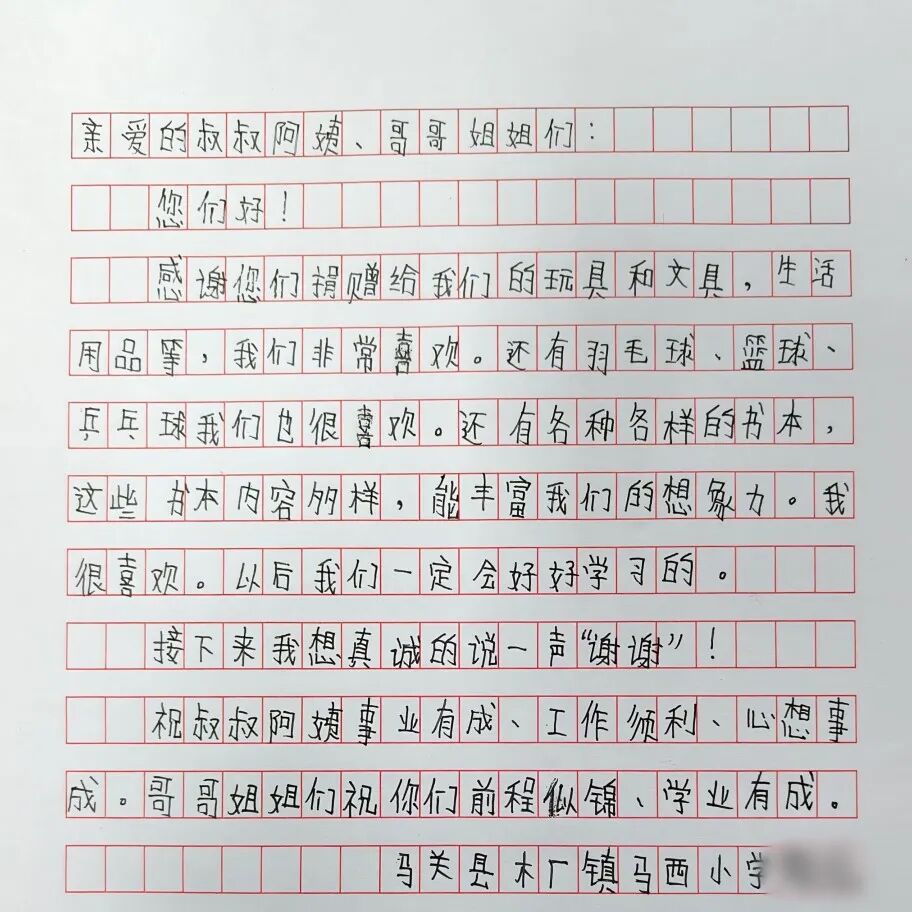 亲爱的叔叔阿姨、哥哥姐姐们：
您们好！
感谢您们捐赠给我们的玩具和文具，生活
用品等，我们非常喜欢。还有羽毛球、篮球、
乒乓球我们也很喜欢。还有各种各样的书本，
这些书本内容多样，能丰富我们的想象力。我
很喜欢。以后我们一定会好好学习的。
接下来我想真诚的说一声“谢谢”！
祝叔叔阿姨事业有成、工作顺利、心想事
成。哥哥姐姐们祝你们前程似锦、学业有成。
马关县木厂镇马西小学